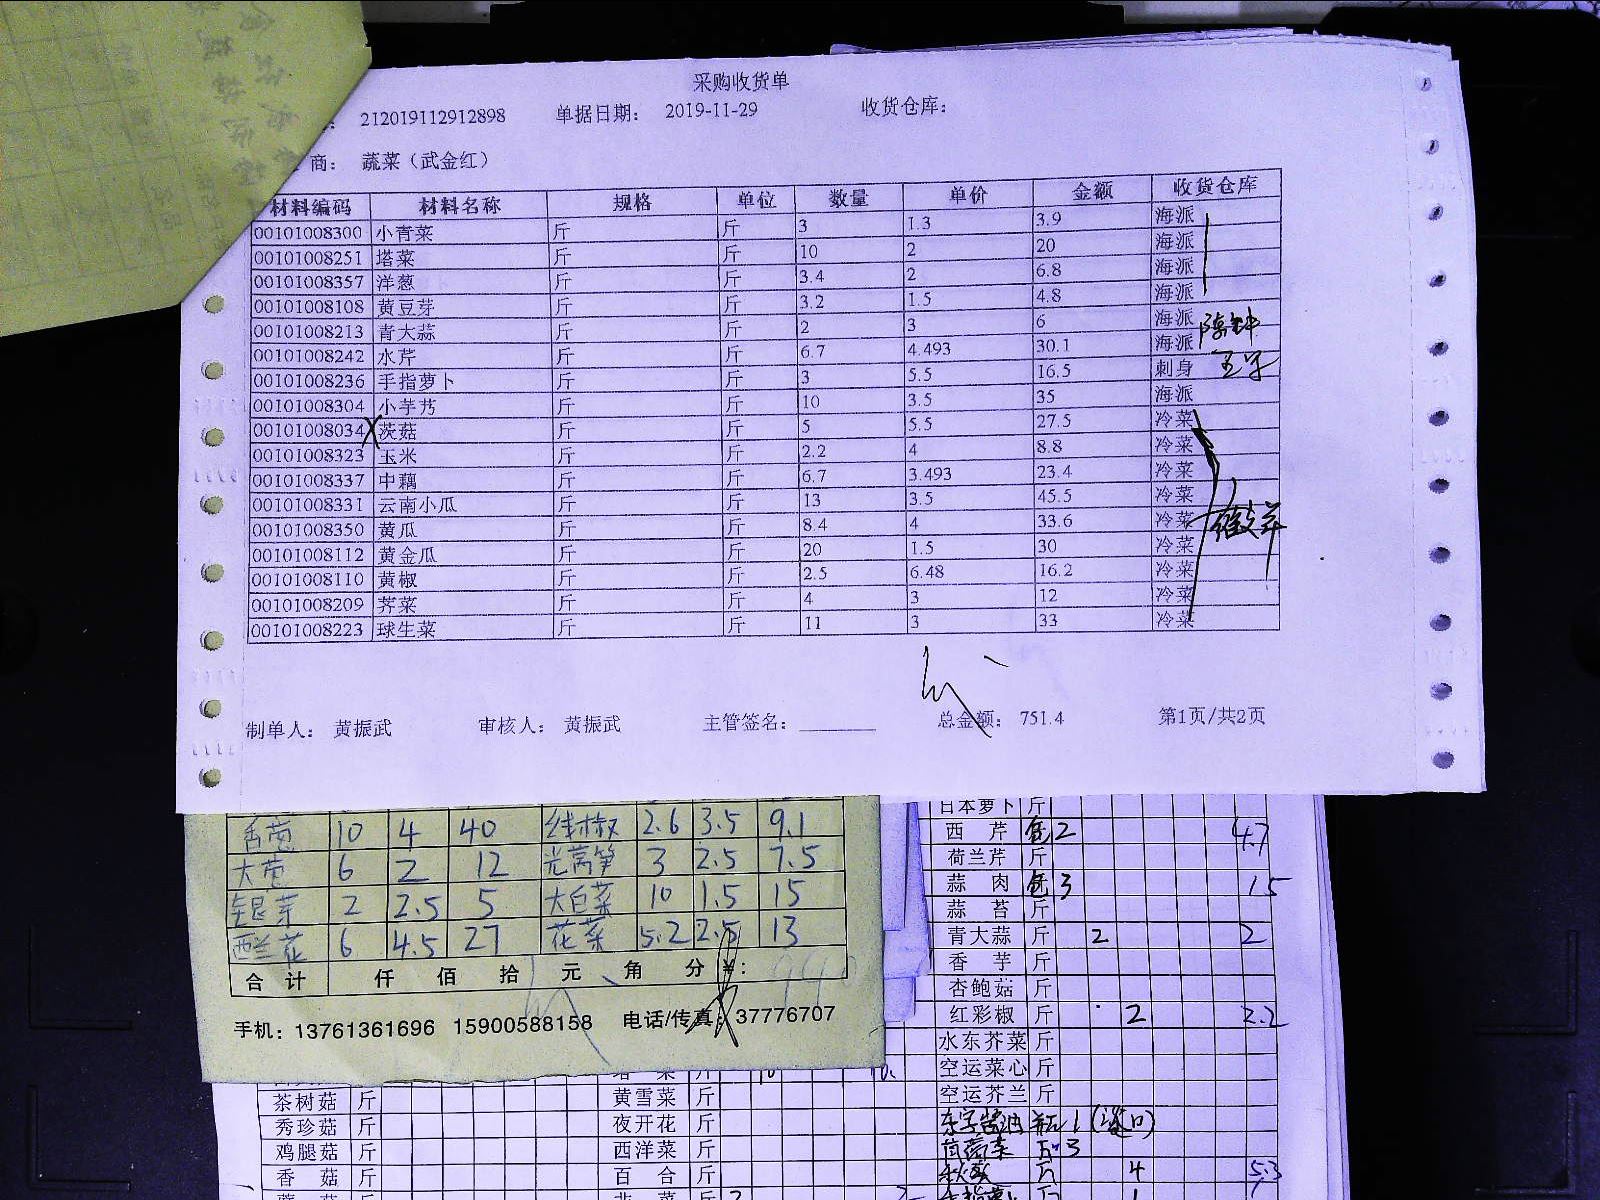 采购收货单
212019112912898 单据日期： 2019-11-29 收货仓库：
商： 蔬菜（武金红）
材料编码 材料名称 规格 单位 数量 单价 金额 收货仓库
00101008300 小青菜 斤 斤 3 1.3 3.9 海派
00101008251 塔菜 斤 斤 10 2 20 海派
00101008357 洋葱 斤 斤 3.4 2 6.8 海派
00101008108 黄豆芽 斤 斤 3.2 1.5 4.8 海派
00101008213 青大蒜 斤 斤 2 3 6 海派
00101008242 水芹 斤 斤 6.7 4.493 30.1 海派
00101008236 手指萝卜 斤 斤 3 5.5 16.5 刺身
00101008304 小芋艿 斤 斤 10 3.5 35 海派
00101008034 茨菇 斤 斤 5 5.5 27.5 冷菜
00101008323 玉米 斤 斤 2.2 4 8.8 冷菜
00101008337 中藕 斤 斤 6.7 3.493 23.4 冷菜
00101008331 云南小瓜 斤 斤 13 3.5 45.5 冷菜
00101008350 黄瓜 斤 斤 8.4 4 33.6 冷菜
00101008112 黄金瓜 斤 斤 20 1.5 30 冷菜
00101008110 黄椒 斤 斤 2.5 6.48 16.2 冷菜
00101008209 荠菜 斤 斤 4 3 12 冷菜
00101008223 球生菜 斤 斤 11 3 33 冷菜
制单人： 黄振武 审核人： 黄振武 主管签名： 总金额： 751.4 第1页/共2页
香葱 10 4 40 线椒 2.6 3.5 9.1
大葱 6 2 12 光莴笋 3 2.5 7.5
银芽 2 2.5 5 大白菜 10 1.5 15
西兰花 6 4.5 27 花菜 5.2 2.5 13
合计 仟 佰 拾 元 角 分 ¥：
手机：13761361696 15900588158 电话/传真：37776707
日本萝卜 斤
西芹 2 4.7
荷兰芹 斤
蒜肉 3 15
蒜苔 斤
青大蒜 斤 2 2
香芋 斤
杏鲍菇 斤
红彩椒 斤 2 2.2
水东芥菜 斤
空运菜心 斤
茶树菇 斤 黄雪菜 斤 空运芥兰 斤
秀珍菇 斤 夜开花 斤
鸡腿菇 斤 西洋菜 斤 茼蒿菜 3
香菇 斤 百合 斤 4 5.3